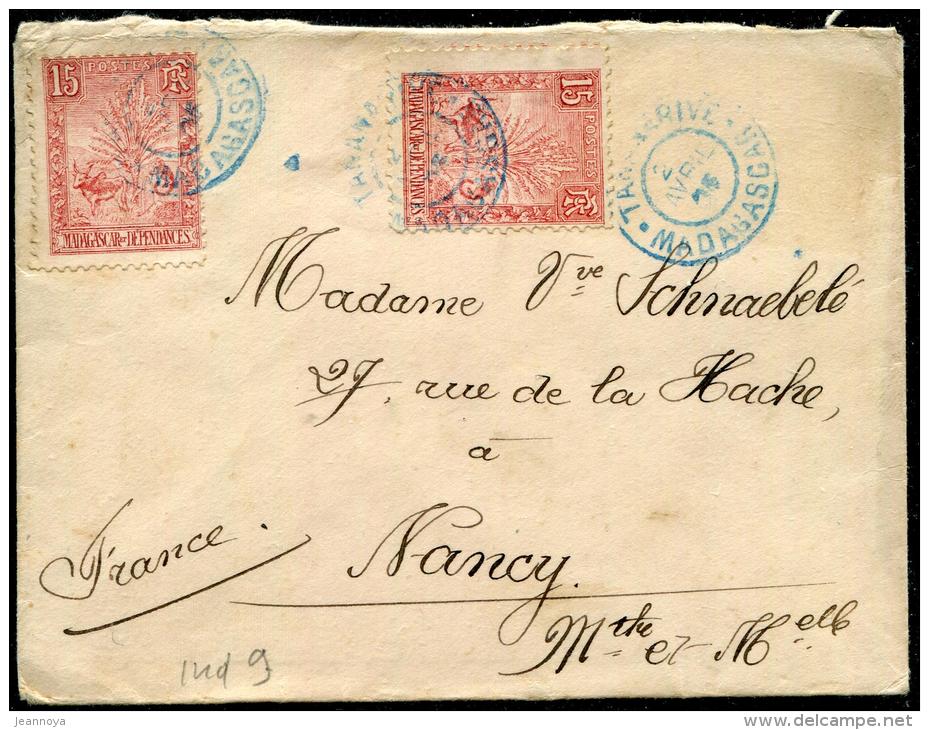 15 POSTES RF
MADAGASCAR ET DÉPENDANCES
MADAGASCAR
15 POSTES RF
MADAGASCAR ET DÉPENDANCES
TANANARIVE • MADAGASCAR •
2
AVRIL
Madame Vve Schnaebelé
27, rue de la Hache,
à
Nancy.
France.
Mthe et Melle
ind 9
jeannoya
www.delcampe.net